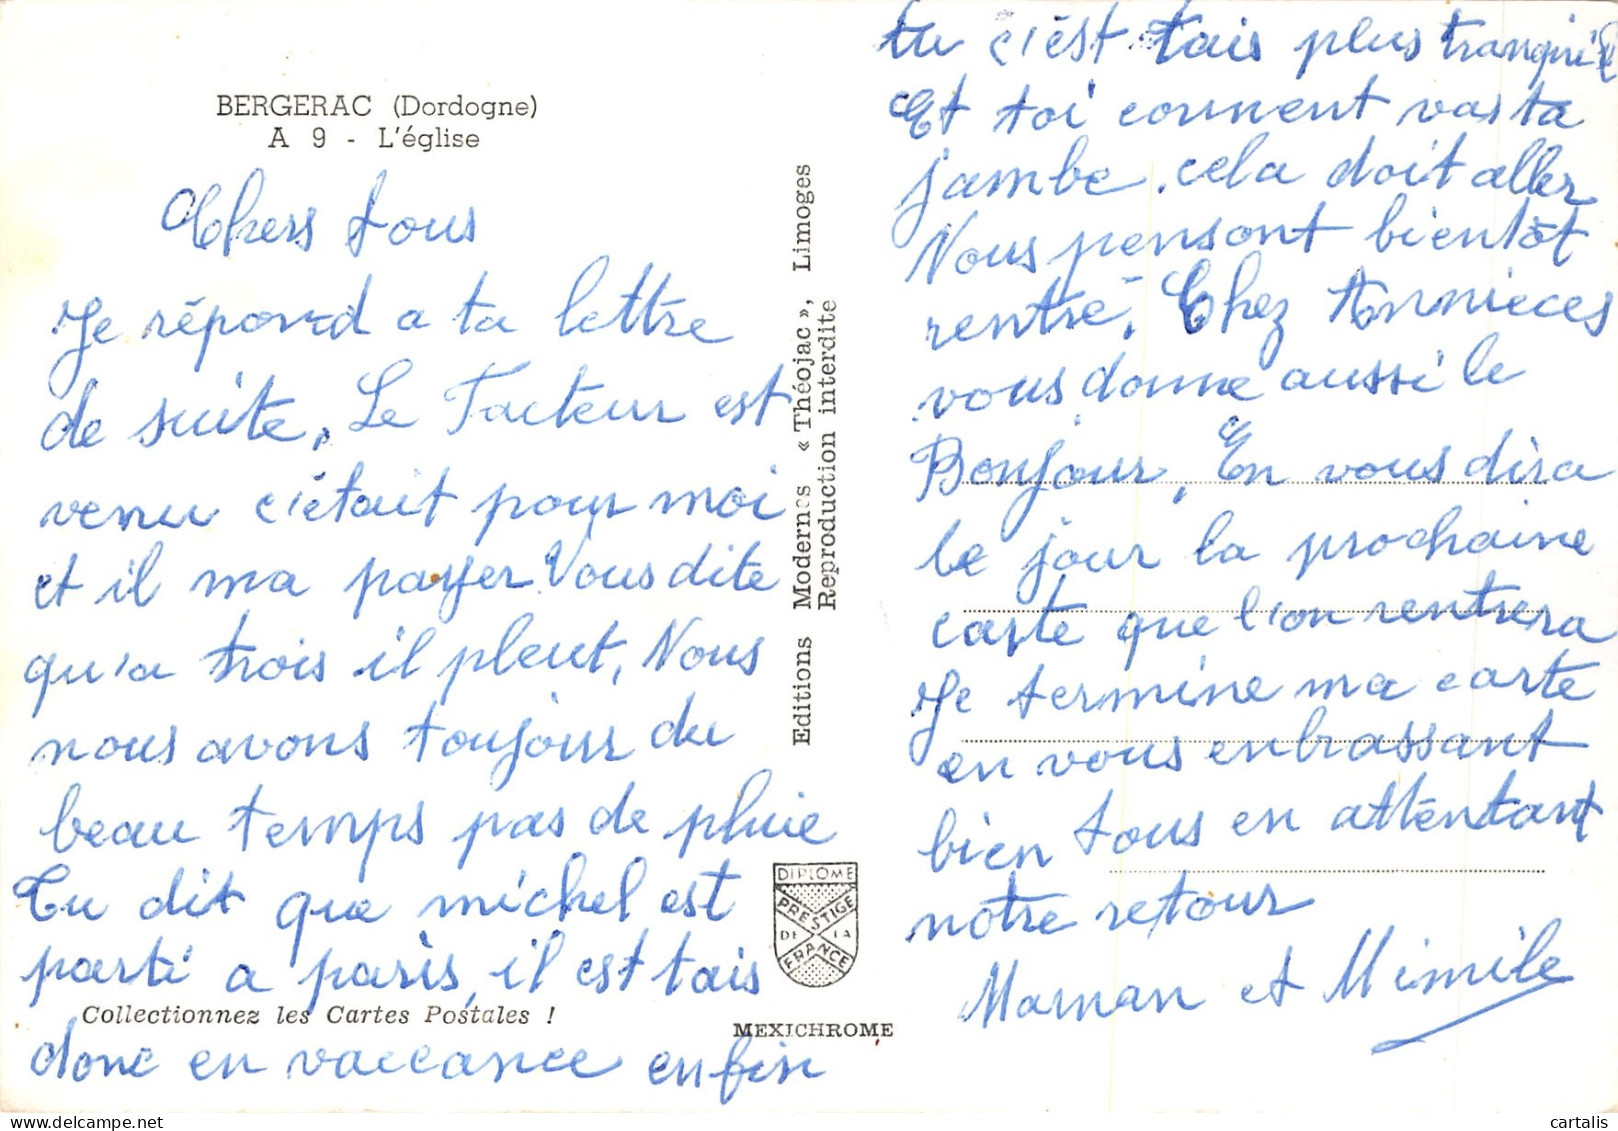 BERGERAC (Dordogne)
A 9 - L'église
Chers tous
Je répond a ta lettre
de suite, Le Facteur est
venu c'était pour moi
et il ma payer Vous dite
qu'a trois il pleut, Nous
nous avons toujour du
beau temps pas de pluie
Tu dit que michel est
parti a paris, il est tais
donc en vaccance enfin
Collectionnez les Cartes Postales !
Editions Modernes « Théojac », Limoges
Reproduction interdite
DIPLOME
PRESTIGE
DE LA
FRANCE
MEXICHROME
tu c'ést tais plus tranquil
Et toi comment vas ta
jambe. cela doit aller
Nous pensont bientôt
rentré, Chez
vous donne aussi le
Bonjour, En vous dira
le jour la prochaine
carte que l'on rentrera
Je termine ma carte
en vous enbrassant
bien tous en attendant
notre retour
Maman et Mimile
cartalis